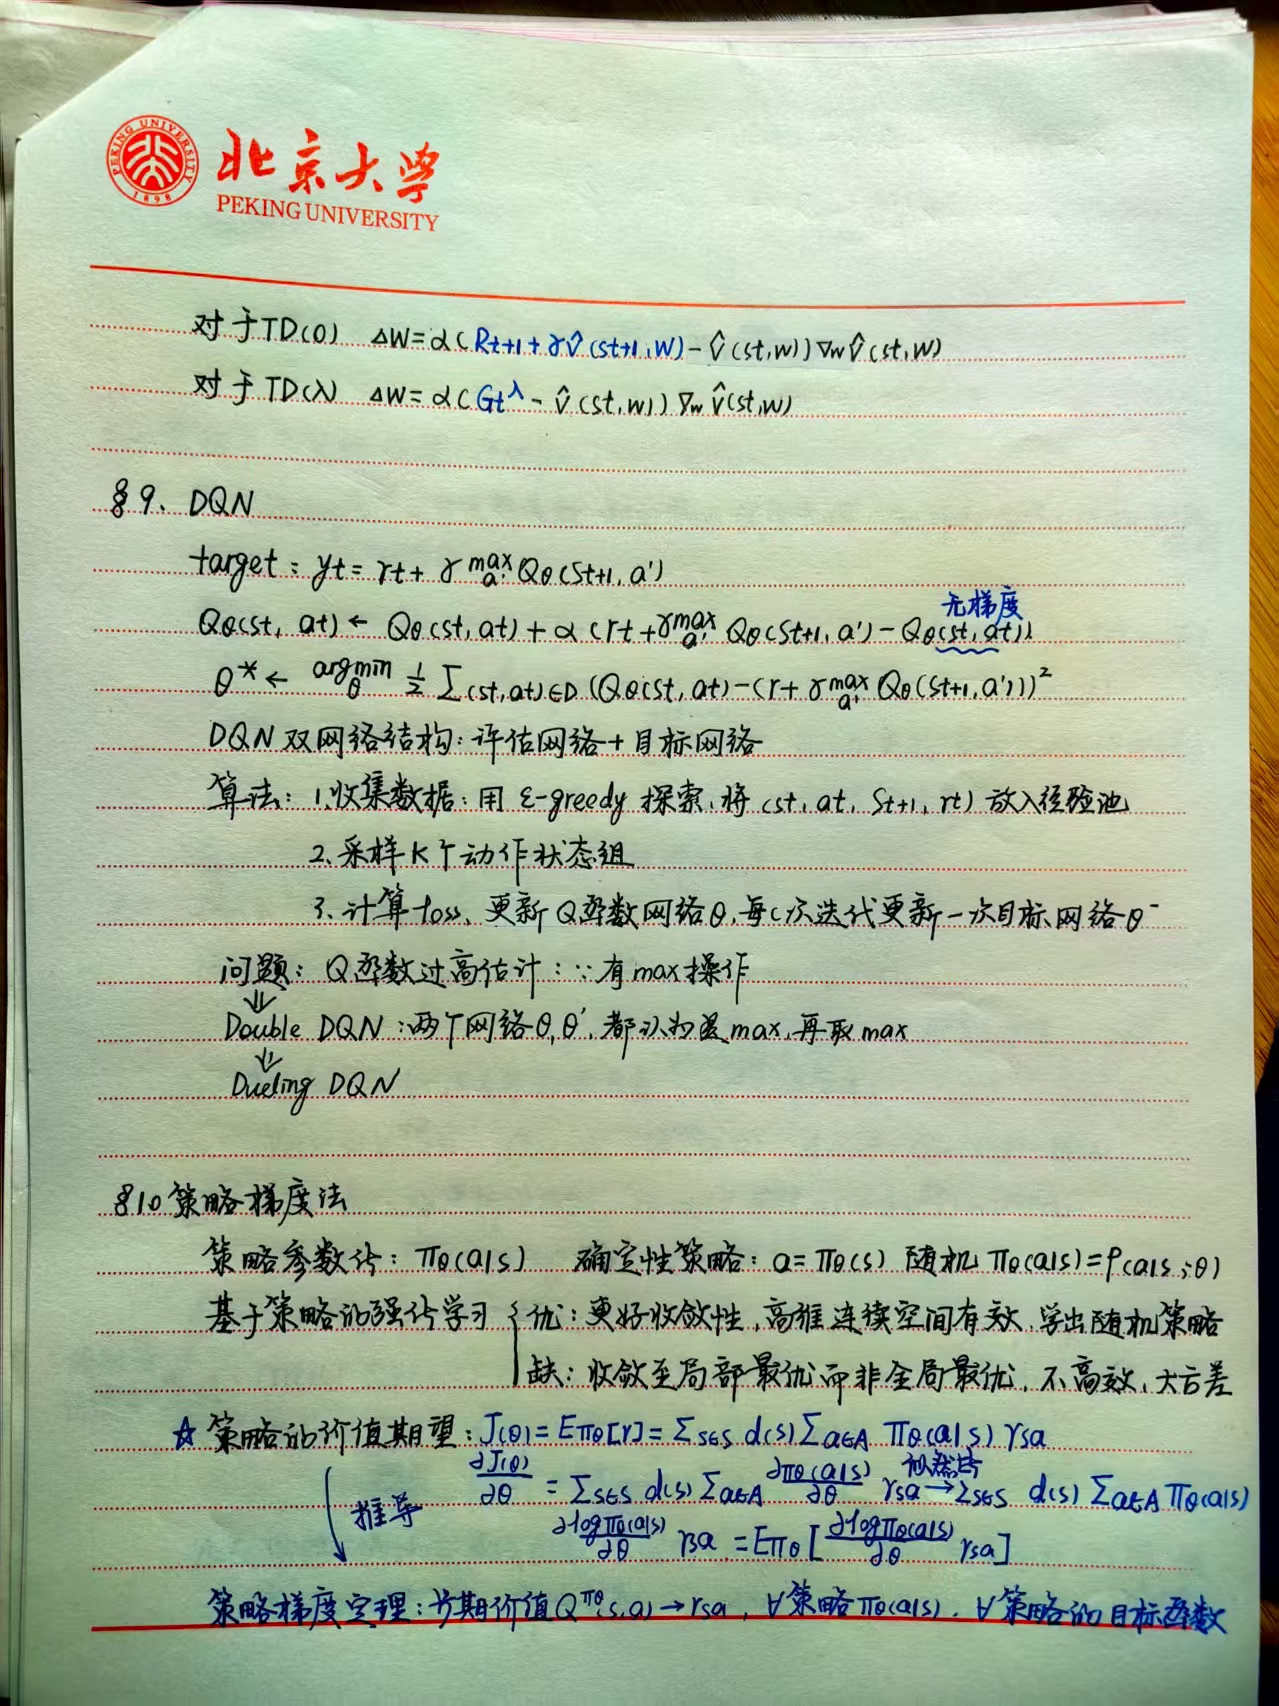 PEKING UNIVERSITY
1898
北京大学
PEKING UNIVERSITY
对于TD(0) ΔW=α(Rt+1+γv̂(st+1,W)-v̂(st,W))∇w v̂(st,W)
对于TD(λ) ΔW=α(Gt^λ-v̂(st,w))∇w v̂(st,w)
§9. DQN
target: yt=rt+γ max a' Qθ(St+1,a')
无梯度
Qθ(st, at)← Qθ(st,at)+α(rt+γ max a' Qθ(St+1,a')-Qθ(st,at))
θ*← argmin θ 1/2 Σ(st,at)∈D (Qθ(st,at)-(r+γ max a' Qθ(St+1,a')))²
DQN双网络结构:评估网络+目标网络
算法: 1.收集数据:用ε-greedy探索,将(st,at,St+1,rt)放入经验池
2.采样K个动作状态组
3.计算loss、更新Q函数网络θ,每C次迭代更新一次目标网络θ⁻
问题: Q函数过高估计:∵有max操作
⇓
Double DQN:两个网络θ,θ',都认为是max,再取max
⇓
Dueling DQN
§10策略梯度法
策略参数化: πθ(a|s) 确定性策略: a=πθ(s) 随机πθ(a|s)=P(a|s;θ)
基于策略的强化学习{优:更好收敛性,高维连续空间有效,学出随机策略
缺:收敛至局部最优而非全局最优,不高效,大方差
☆策略的价值期望:J(θ)=Eπθ[r]=Σs∈S d(s)Σa∈A πθ(a|s)rsa
推导 ∂J(θ)/∂θ =Σs∈S d(s)Σa∈A ∂πθ(a|s)/∂θ rsa 似然比→Σs∈S d(s)Σa∈A πθ(a|s)
∂logπθ(a|s)/∂θ rsa =Eπθ[∂logπθ(a|s)/∂θ rsa]
策略梯度定理:长期价值Q^πθ(s,a)→rsa, ∀策略πθ(a|s), ∀策略的目标函数